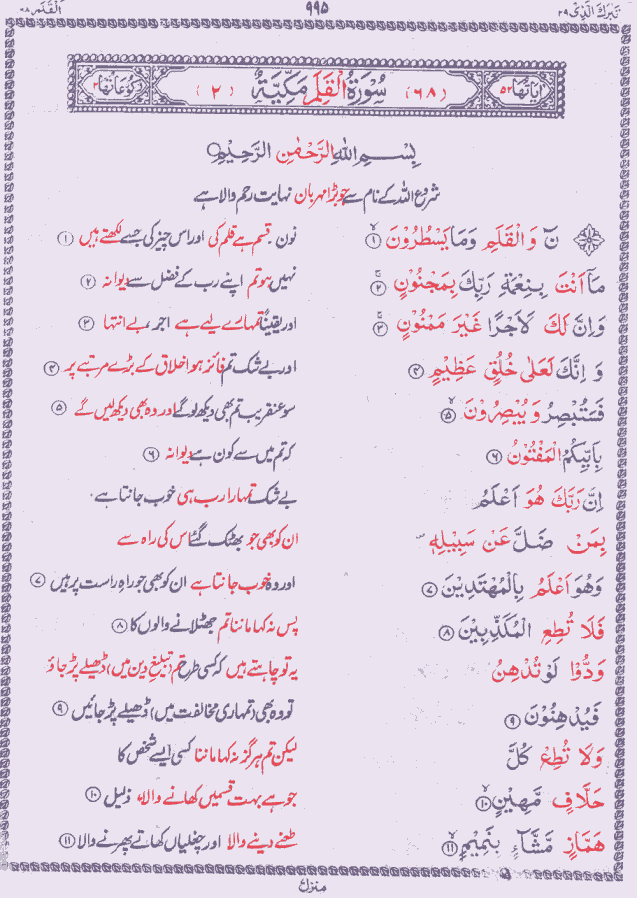 تَبٰرَكَ الَّذِىْ ٢٩ ٩٩٥ اَلْقَلَم ٦٨
اٰيَاتُهَا ٥٢ (٦٨) سُوْرَةُ الْقَلَمِ مَكِّيَّةٌ (٢) رُكُوْعَاتُهَا ٢
بِسْمِ اللّٰهِ الرَّحْمٰنِ الرَّحِيْمِ
شروع اللہ کے نام سے جو بڑا مہربان نہایت رحم والا ہے
نٓ وَالْقَلَمِ وَمَا يَسْطُرُوْنَ ۙ﴿١﴾ نون۔ قسم ہے قلم کی اور اس چیز کی جسے لکھتے ہیں ﴿١﴾
مَاۤ اَنْتَ بِنِعْمَةِ رَبِّكَ بِمَجْنُوْنٍ ۚ﴿٢﴾ نہیں ہو تم اپنے رب کے فضل سے دیوانہ ﴿٢﴾
وَاِنَّ لَكَ لَاَجْرًا غَيْرَ مَمْنُوْنٍ ۚ﴿٣﴾ اور یقیناً تمہارے لیے ہے اجر، بے انتہا ﴿٣﴾
وَ اِنَّكَ لَعَلٰى خُلُقٍ عَظِيْمٍ ﴿٤﴾ اور بے شک تم فائز ہو اخلاق کے بڑے مرتبے پر ﴿٤﴾
فَسَتُبْصِرُ وَ يُبْصِرُوْنَ ۙ﴿٥﴾ سو عنقریب تم بھی دیکھ لو گے اور وہ بھی دیکھ لیں گے ﴿٥﴾
بِاَيِّيكُمُ الْمَفْتُوْنُ ﴿٦﴾ کہ تم میں سے کون ہے دیوانہ ﴿٦﴾
اِنَّ رَبَّكَ هُوَ اَعْلَمُ بے شک تمہارا رب ہی خوب جانتا ہے۔
بِمَنْ ضَلَّ عَنْ سَبِيْلِهٖ ان کو بھی جو بھٹک گئے اس کی راہ سے
وَهُوَ اَعْلَمُ بِالْمُهْتَدِيْنَ ﴿٧﴾ اور وہ خوب جانتا ہے ان کو بھی جو راہِ راست پر ہیں ﴿٧﴾
فَلَا تُطِعِ الْمُكَذِّبِيْنَ ﴿٨﴾ پس نہ کہا ماننا تم جھٹلانے والوں کا ﴿٨﴾
وَدُّوْا لَوْ تُدْهِنُ یہ تو چاہتے ہیں کہ کسی طرح تم (تبلیغِ دین میں) ڈھیلے پڑ جاؤ
فَيُدْهِنُوْنَ ﴿٩﴾ تو وہ بھی (تمہاری مخالفت میں) ڈھیلے پڑ جائیں ﴿٩﴾
وَلَا تُطِعْ كُلَّ لیکن تم ہرگز نہ کہا ماننا کسی ایسے شخص کا
حَلَّافٍ مَّهِيْنٍ ۙ﴿١٠﴾ جو ہے بہت قسمیں کھانے والا، ذلیل ﴿١٠﴾
هَمَّازٍ مَّشَّآءٍ بِنَمِيْمٍ ۙ﴿١١﴾ طعنے دینے والا اور چغلیاں کھاتے پھرنے والا ﴿١١﴾
منزل